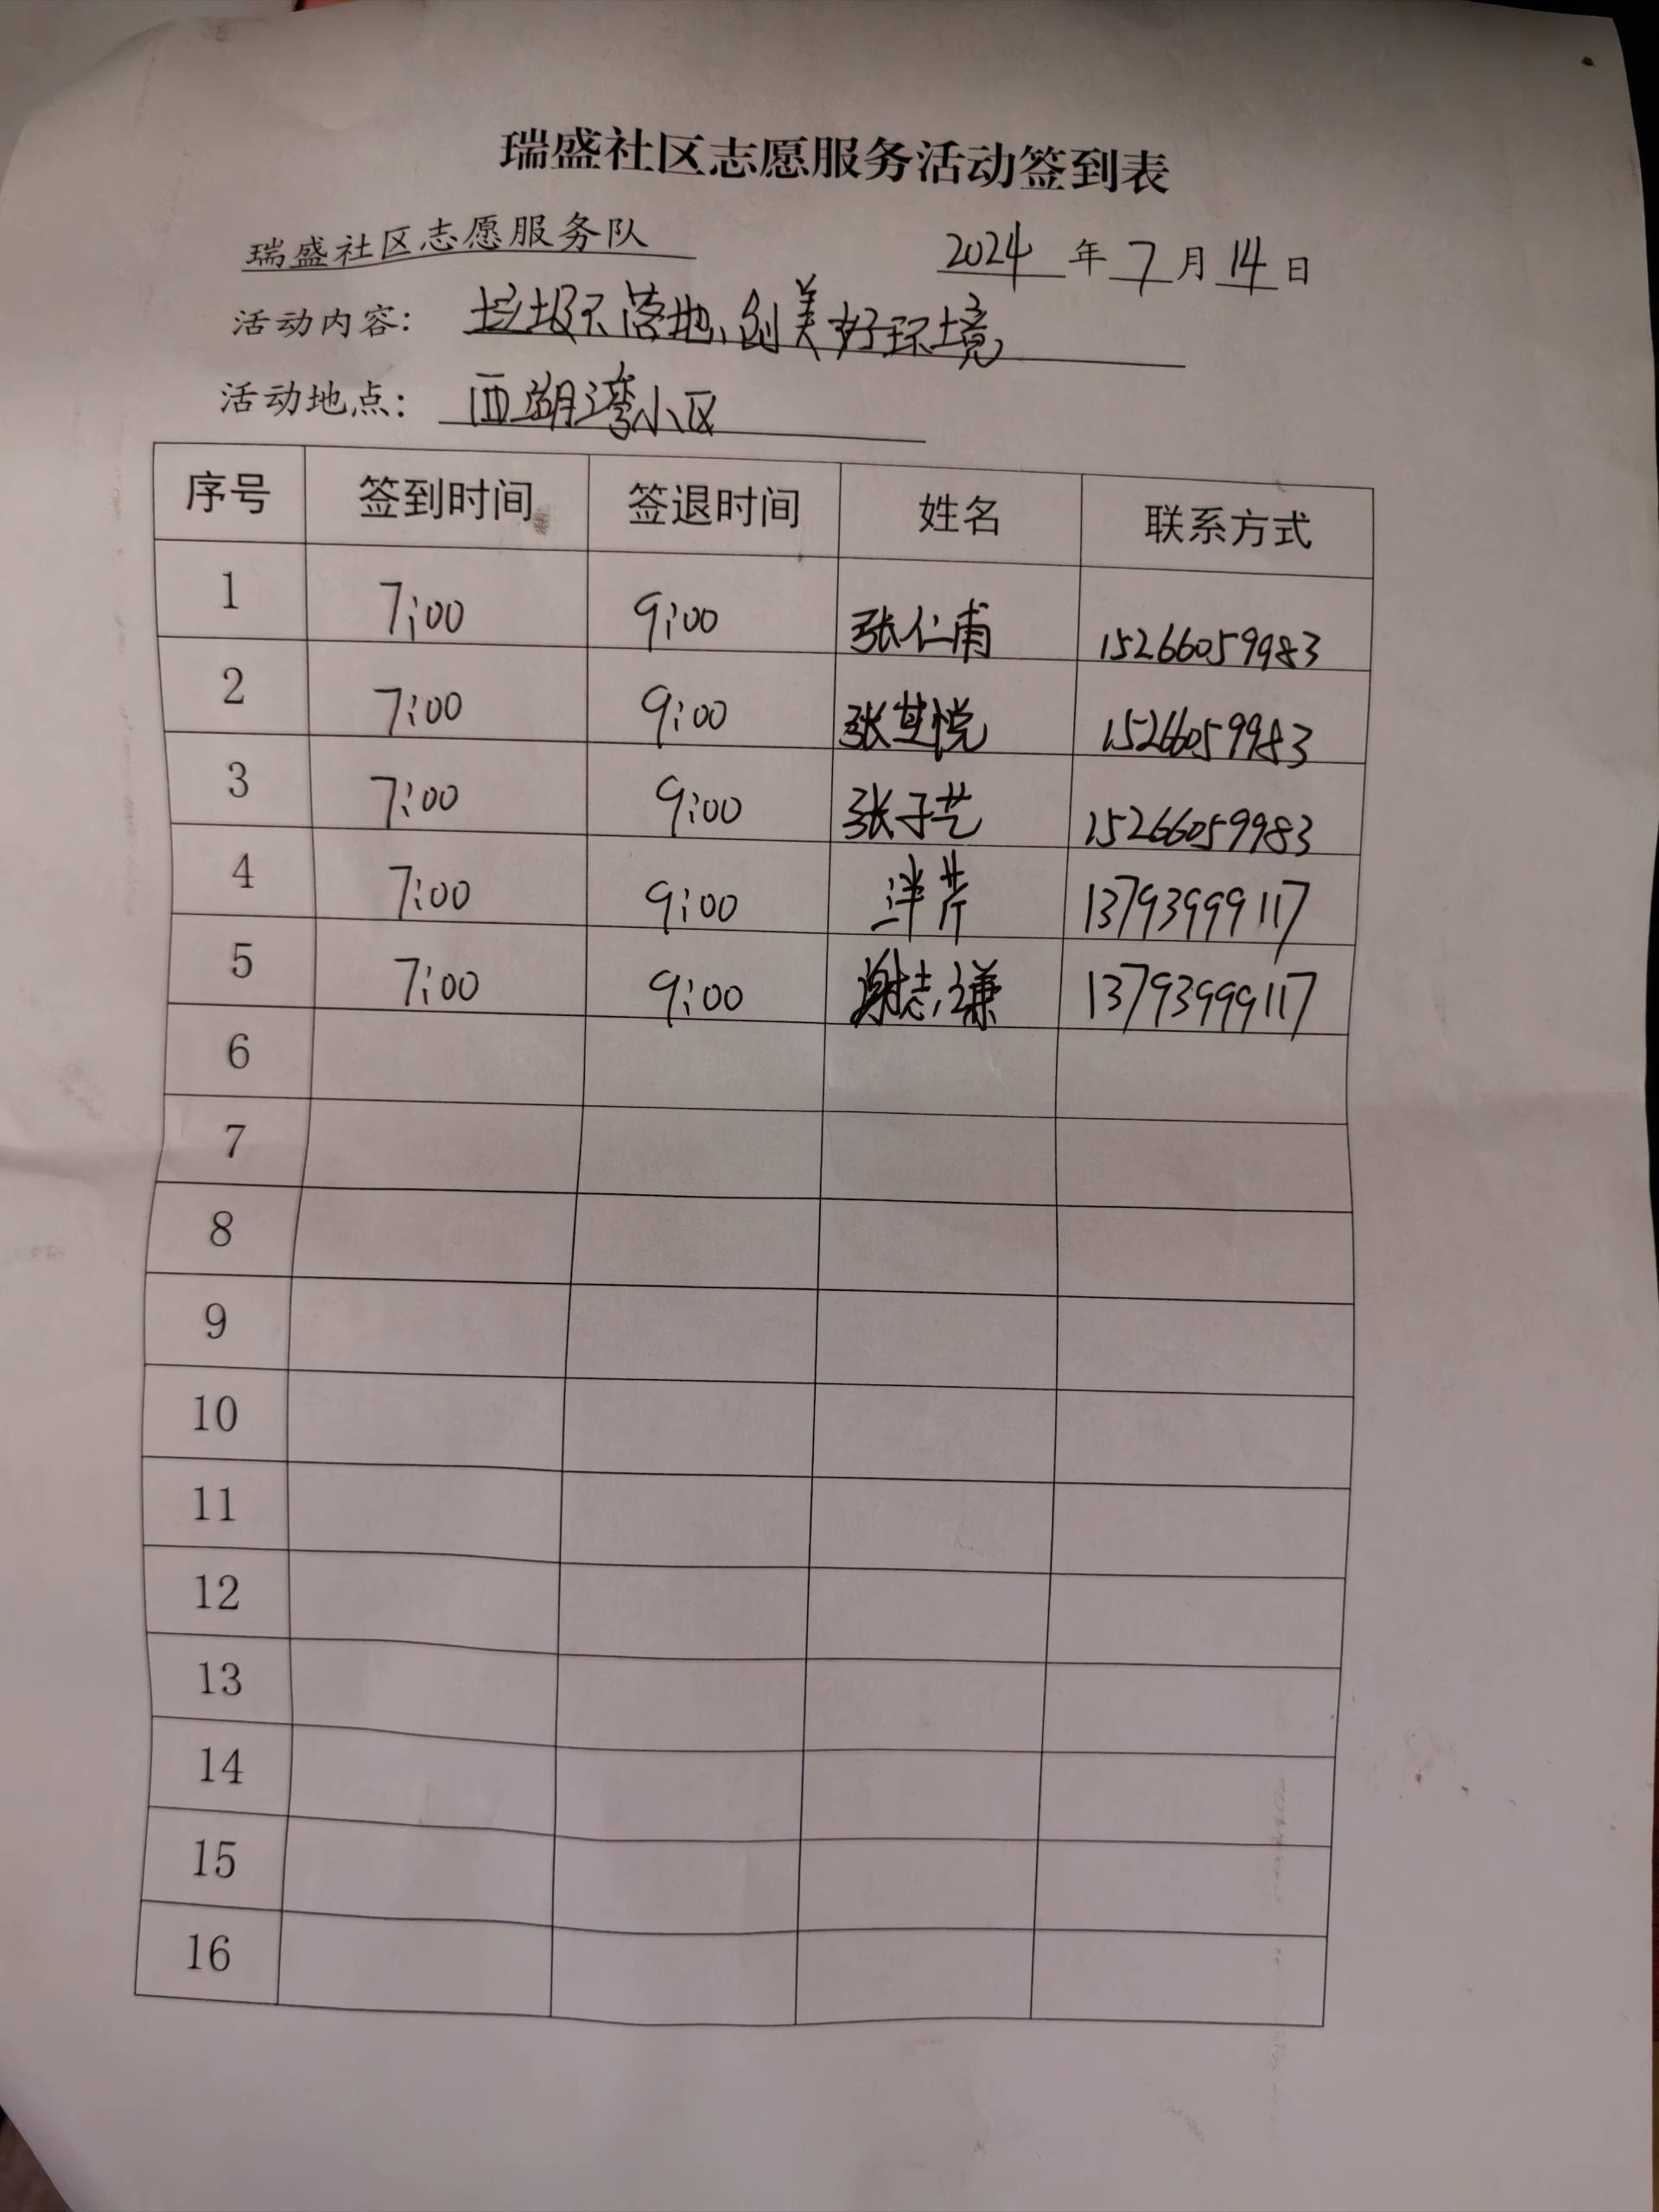 瑞盛社区志愿服务活动签到表
瑞盛社区志愿服务队 2024年7月14日
活动内容：垃圾不落地，创美好环境
活动地点：西湖湾小区
序号 签到时间 签退时间 姓名 联系方式
1 7:00 9:00 张仁甫 15266059983
2 7:00 9:00 张芝悦 15266059983
3 7:00 9:00 张子艺 15266059983
4 7:00 9:00 洋芹 13793999117
5 7:00 9:00 谢志谦 13793999117
6
7
8
9
10
11
12
13
14
15
16